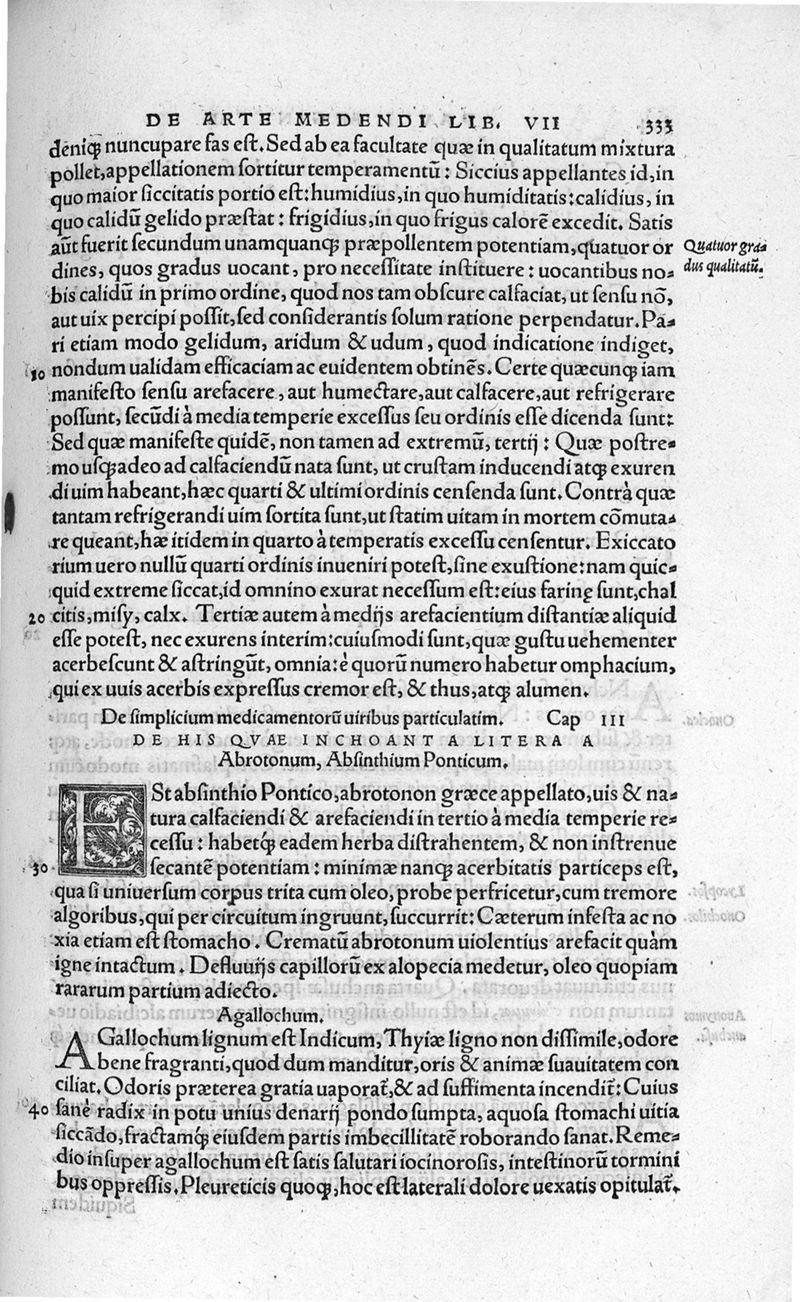 DE ARTE MEDENDI LIB. VII 333
deniq; nuncupare fas est. Sed ab ea facultate quæ in qualitatum mixtura
pollet, appellationem sortitur temperamentũ: Siccius appellantes id, in
quo maior siccitatis portio est: humidius, in quo humiditatis: calidius, in
quo calidũ gelido præstat: frigidius, in quo frigus calorẽ excedit. Satis
aũt fuerit secundum unamquanq; præpollentem potentiam, quatuor or
Quatuor gra-
dines, quos gradus uocant, pro necessitate instituere: uocantibus no-
dus qualitatũ.
bis calidũ in primo ordine, quod nos tam obscure calfaciat, ut sensu nõ,
aut uix percipi possit, sed considerantis solum ratione perpendatur. Pa-
ri etiam modo gelidum, aridum & udum, quod indicatione indiget,
10 nondum ualidam efficaciam ac euidentem obtinẽs. Certe quæcunq; iam
manifesto sensu arefacere, aut humectare, aut calfacere, aut refrigerare
possunt, secũdi à media temperie excessus seu ordinis esse dicenda sunt:
Sed quæ manifeste quidẽ, non tamen ad extremũ, tertij: Quæ postre-
mo usq;adeo ad calfaciendũ nata sunt, ut crustam inducendi atq; exuren
di uim habeant, hæc quarti & ultimi ordinis censenda sunt. Contrà quæ
tantam refrigerandi uim sortita sunt, ut statim uitam in mortem cõmuta-
re queant, hæ itidem in quarto à temperatis excessu censentur. Exiccato
rium uero nullũ quarti ordinis inueniri potest, sine exustione: nam quic-
quid extreme siccat, id omnino exurat necessum est: eius farinę sunt, chal
20 citis, misy, calx. Tertiæ autem à medijs arefacientium distantiæ aliquid
esse potest, nec exurens interim: cuiusmodi sunt, quæ gustu uehementer
acerbescunt & astringũt, omnia: è quorũ numero habetur omphacium,
qui ex uuis acerbis expressus cremor est, & thus, atq; alumen.
De simplicium medicamentorũ uiribus particulatim. Cap III
DE HIS QVAE INCHOANT A LITERA A
Abrotonum, Absinthium Ponticum.
ESt absinthio Pontico, abrotonon græce appellato, uis & na-
tura calfaciendi & arefaciendi in tertio à media temperie re-
cessu: habetq; eadem herba distrahentem, & non instrenue
30 secantẽ potentiam: minimæ nanq; acerbitatis particeps est,
qua si uniuersum corpus trita cum oleo, probe perfricetur, cum tremore
algoribus, qui per circuitum ingruunt, succurrit: Cæterum infesta ac no
xia etiam est stomacho. Crematũ abrotonum uiolentius arefacit quàm
igne intactum. Defluuijs capillorũ ex alopecia medetur, oleo quopiam
rararum partium adiecto.
Agallochum.
AGallochum lignum est Indicum, Thyiæ ligno non dissimile, odore
bene fragranti, quod dum manditur, oris & animæ suauitatem con
ciliat. Odoris præterea gratia uaporat̃, & ad suffimenta incendit̃: Cuius
40 sanè radix in potu unius denarij pondo sumpta, aquosa stomachi uitia
siccãdo, fractamq; eiusdem partis imbecillitatẽ roborando sanat. Reme-
dio insuper agallochum est satis salutari iocinorosis, intestinorũ tormini
bus oppressis. Pleureticis quoq;, hoc est laterali dolore uexatis opitulat̃.